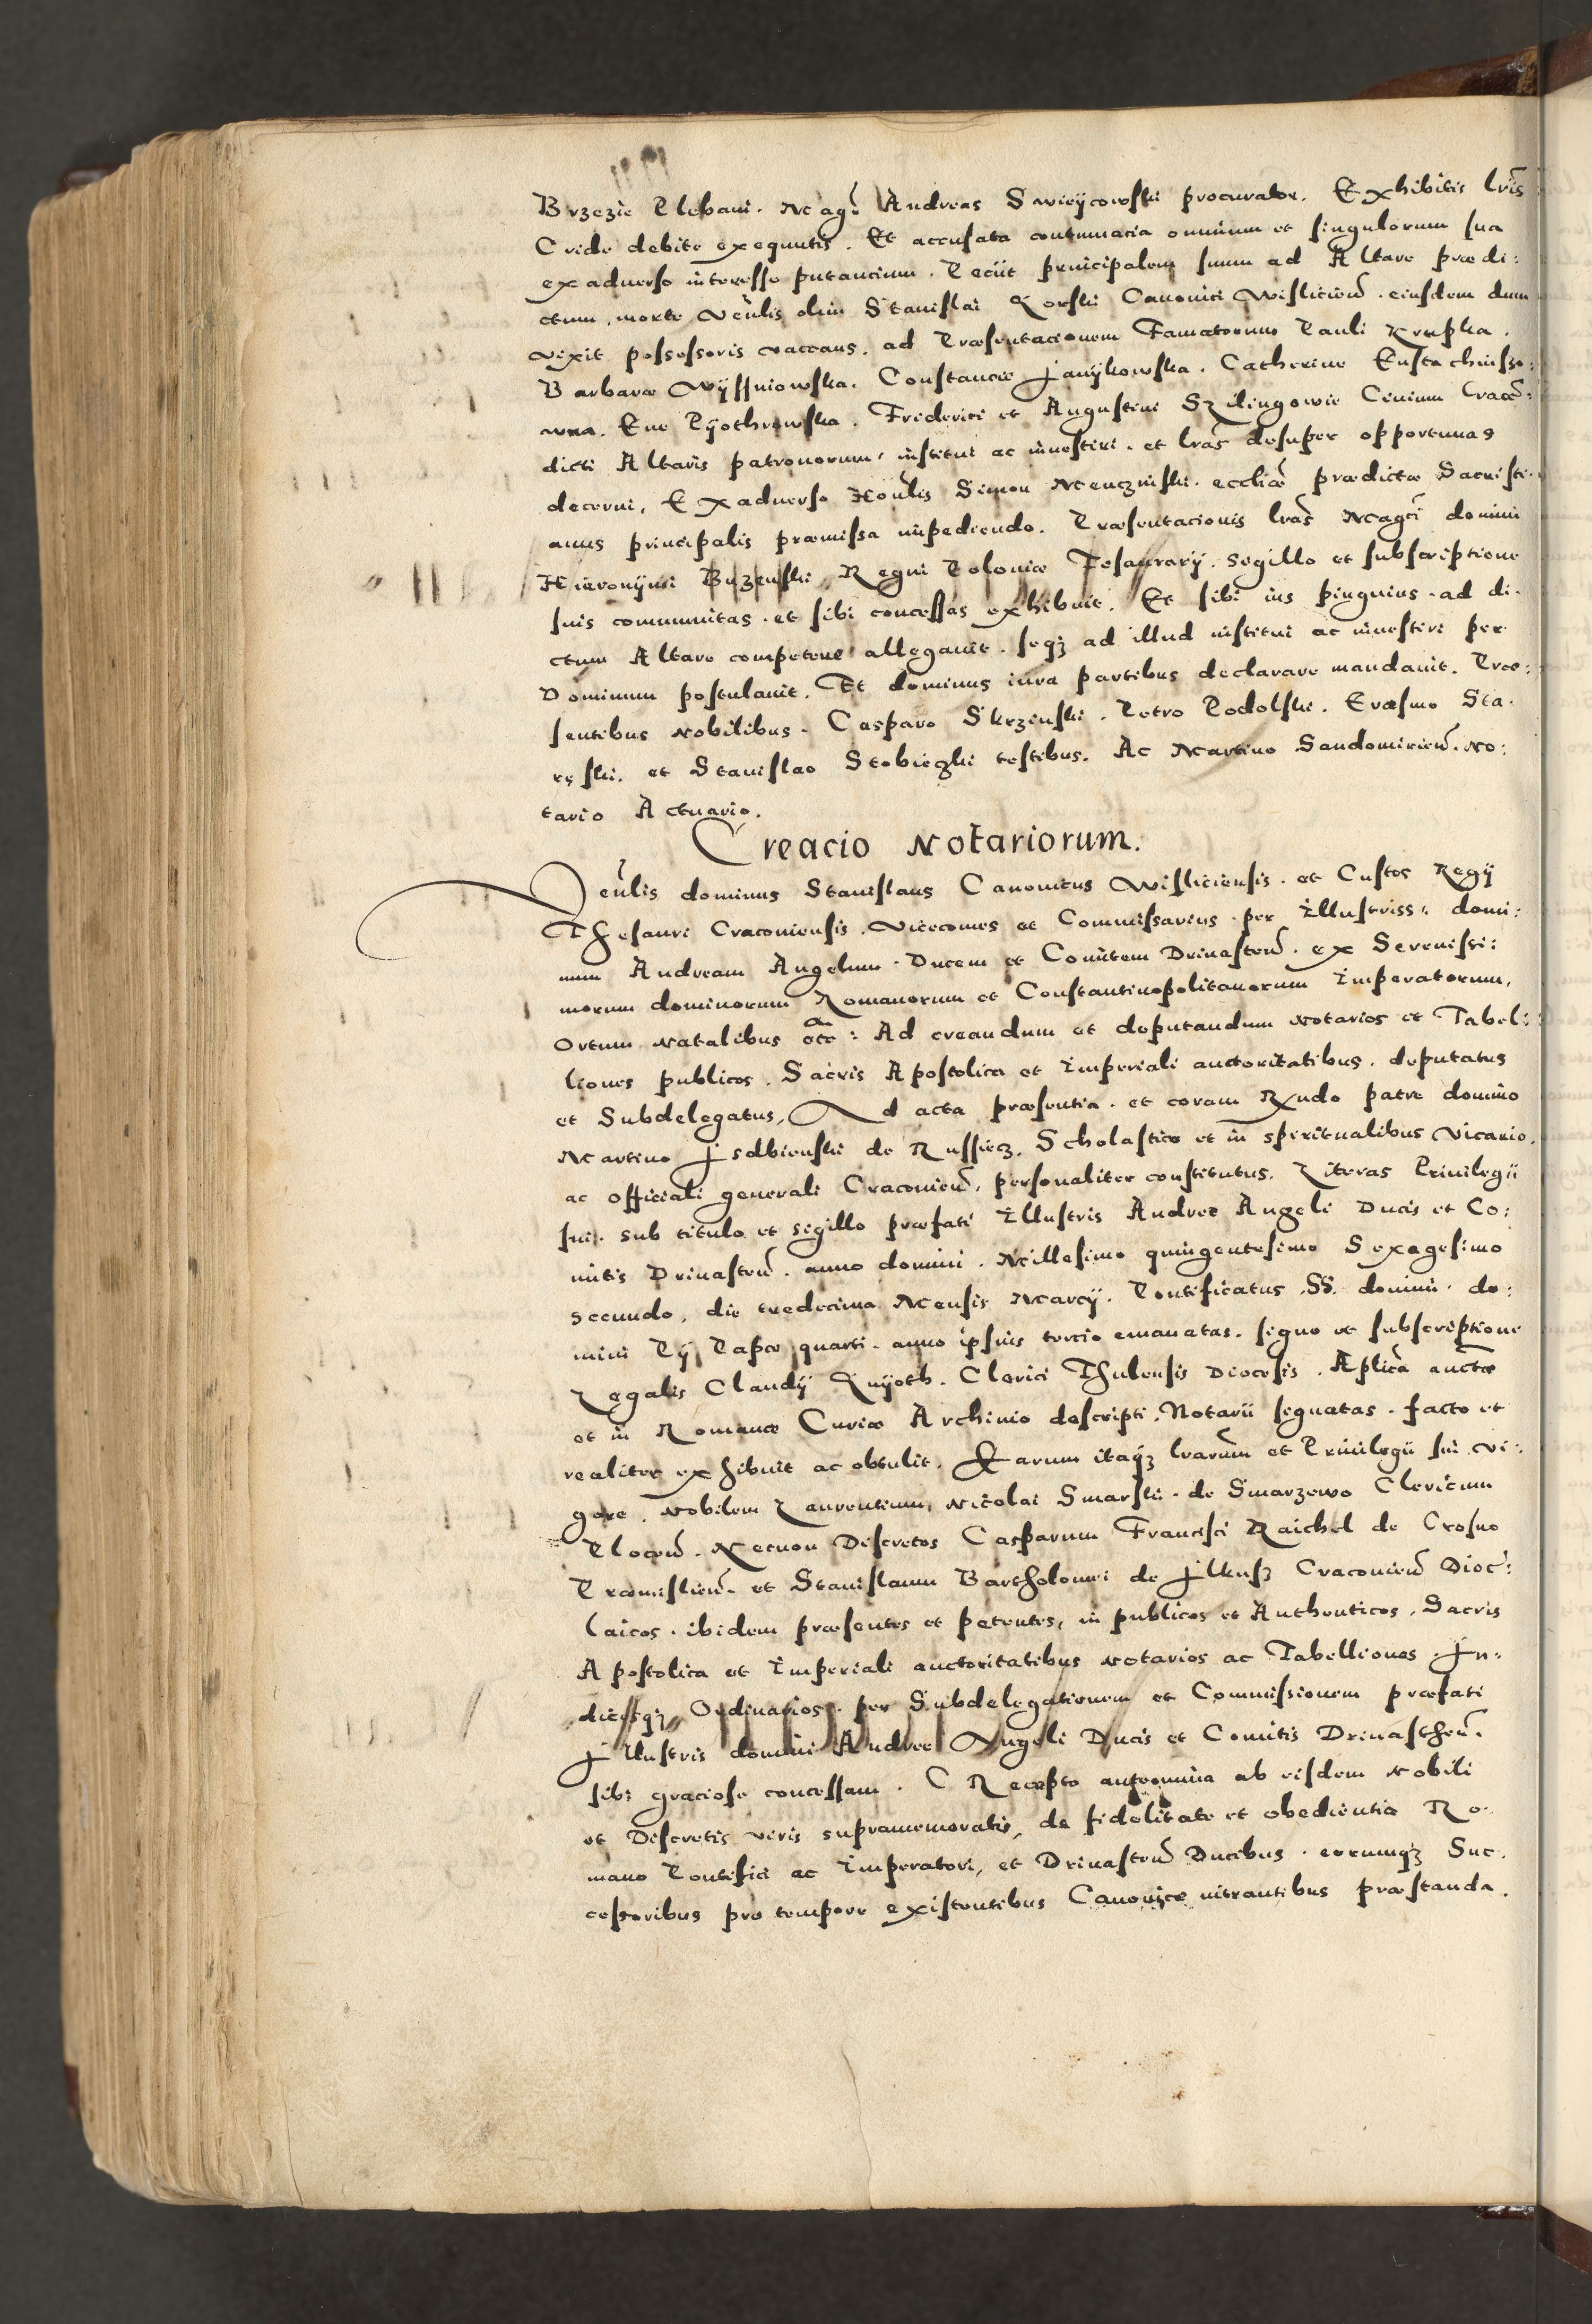 Brzezie Plebani. Magr̃ Andreas Swieycowski procurator. Exhibitis lrĩs
Cride debite exequutis. Et accusata contumacia omnium et singulorum sua
ex aduerso interesse putancium. Peciit principalem suum ad Altare prædi:
ctum, morte Veñlis olim Stanislai Gorski Canonici Wislicieñ. eiusdem dum
vixit possessoris vaccans. ad Præsentacionem Famatorum Pauli Krupka.
Barbaræ Wyssniowska. Constanciæ Janykowska. Catherine Eustachiusso:
wna. Eue Pyothrowska. Friderici et Augustini Szilingowie Ciuium Cracõ:
dicti Altaris patronorum, institui ac inuestiri. et lras̃ desuper opportunas
decerni, Ex aduerso Hoñlis Simon Menczinski. eccliæ̃ prædictæ Sacristi:
anus principalis præmissa impediendo. Præsentacionis lras̃ Magci̇̃ domini
Hieronymi Buzenski, Regni Poloniæ Tesaurarij. sigillo et subscriptione
suis communitas. et sibi concessas exhibuit. Et sibi ius pinguius. ad di:
ctum Altare competere allegauit. seqz ad illud institui ac inuestiri per
Dominum postulauit. Et dominus iura partibus declarare mandauit. Præ:
sentibus Nobilibus. Casparo Skrzinski. Petro Podolski. Erasmo Sta:
ręski. et Stanislao Stobieczki testibus. Ac Martino Sandomirieñ. No:
tario Actuario.
Creacio Notariorum.
Veñlis dominus Stanislaus Canonicus Wisliciensis. et Custos Regij
Thesauri Cracouiensis. Vicecomes et Commissarius. per Illustriss: domi:
num Andream Angelum. Ducem et Comitem Driuasteñ. ex Serenissi:
morum dominorum Romanorum et Constantinopolitanorum Imperatorum,
Ortum Natalibus etc: Ad creandum et deputandum Notarios et Tabel:
liones publicos. Sacris Apostolica et Imperiali auctoritatibus. deputatus
et Subdelegatus, Ad acta præsentia. et coram Rñdo patre domino
Martino Isdbienski de Russiecz. Scholastico et in spiritualibus Vicario.
ac Officiali generali Cracouieñ. personaliter constitutus. Literas Priuilegii
sui. sub titulo et sigillo præfati Illustris Andreæ Angeli Ducis et Co:
mitis Driuasteñ. anno domini. Millesimo quingentesimo Sexagesimo
secundo, die tredecima Mensis Marcij. Pontificatus SS. domini. do:
mini Pij Papæ quarti. anno ipsius tercio emanatas. signo et subscriptione
Legalis Claudij Guyoth. Clerici Thulensis Diocesis. Aplica͂ auct͂e
et in Romanæ Curiæ Archiuio descripti. Notarii signatas. facto et
realiter exhibuit ac obtulit. Harum itaqz lrarum͂ et Priuilegii sui vi:
gore, Nobilem Laurentium Nicolai Smarski. de Smarzewo Clericum
Ploceñ. Necnon Discretos Casparum Francisci Raichel de Crosno
Præmislieñ. et Stanislaum Bartholomei de Ilkusz Cracouieñ Dioc̃:
laicos. ibidem præsentes et petentes, in publicos et Authenticos, Sacris
Apostolica et Imperiali auctoritatibus Notarios ac Tabelliones. Iu:
dicesqz Ordinarios. per Subdelegationem et Commissionem præfati
Illustris domini Andreæ Angeli Ducis et Comitis Driuastheñ.
sibi graciose concessam. C Recepto ab eisdem Nobili
et Discretis viris supramemoratis, de fidelitate et obedientia Ro:
mano Pontifici ac Imperatori, et Driuasteñ Ducibus. eorumqz Suc:
cessoribus pro tempore existentibus Canonice intrantibus præstanda.